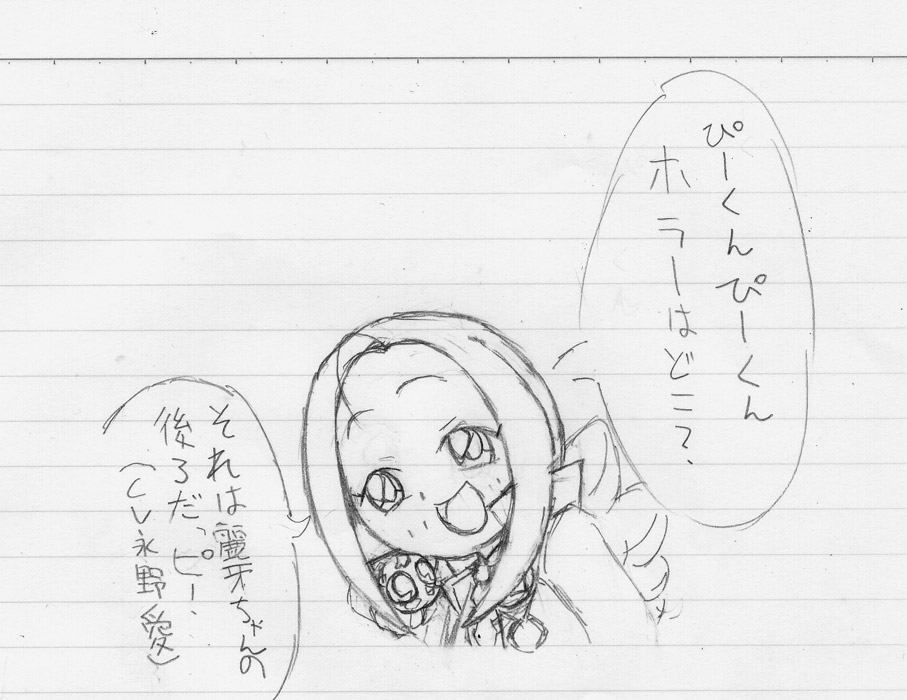 ぴーくんぴーくん
ホラーはどこ？
それは麗牙ちゃんの
後ろだっピ！
（CV永野愛）